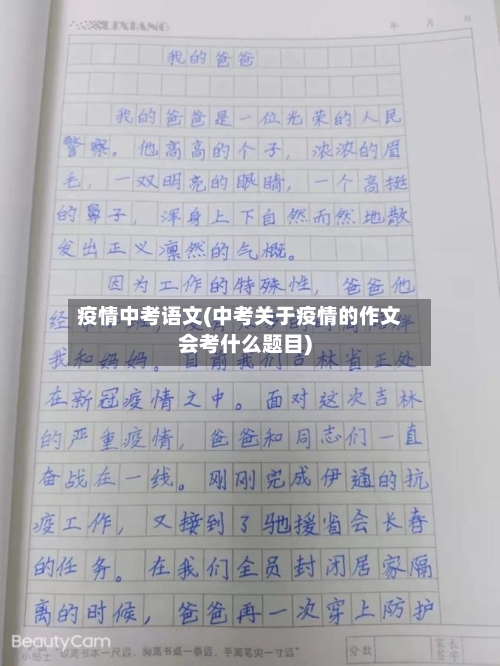 LIXIANG
年 月 日
我的爸爸
我的爸爸是一位光荣的人民
警察。他高高的个子，浓浓的眉
毛，一双明亮的眼睛，一个高挺
的鼻子，浑身上下自然而然地散
发出正义凛然的气概。
因为工作的特殊性，爸爸他
疫情中考语文(中考关于疫情的作文
会考什么题目)
我和妈妈。目前我们吉林省正处
在新冠疫情之中。面对这次吉林
的严重疫情，爸爸和同志们一直
奋战在一线。刚刚完成伊通的抗
疫工作，又接到了驰援省会长春
的任务。在我们全员封闭居家隔
离的时候，爸爸再一次穿上防护
BeautyCam
眼离书本一尺远，胸离书桌一拳远，手离笔尖一寸远"
分数
家长
签字